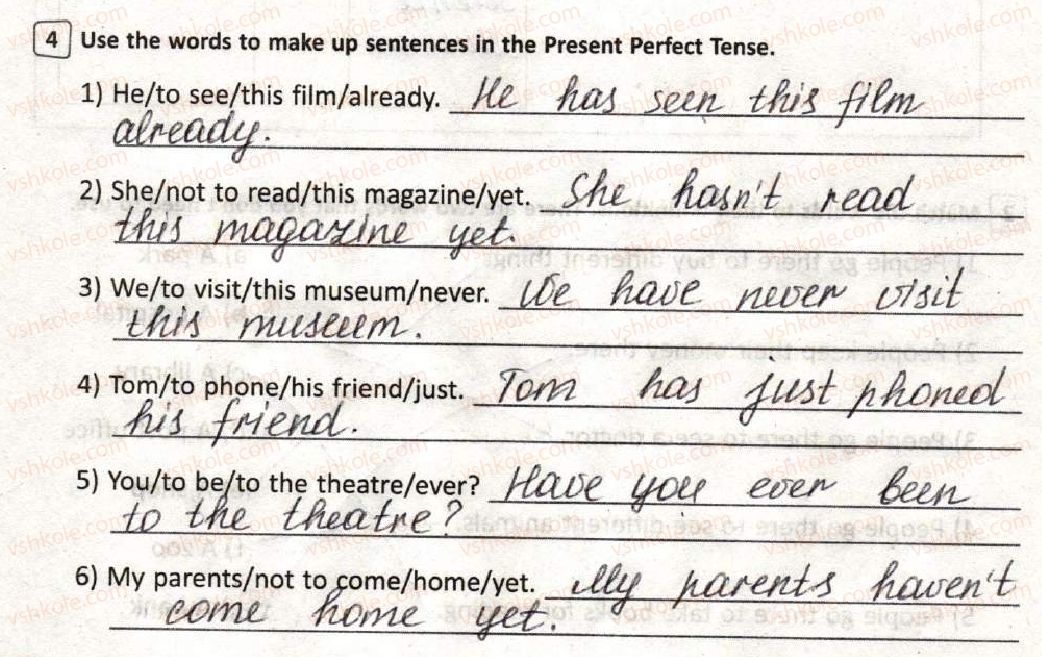 4 Use the words to make up sentences in the Present Perfect Tense.
1) He/to see/this film/already. He has seen this film
already.
2) She/not to read/this magazine/yet. She hasn't read
this magazine yet.
3) We/to visit/this museum/never. We have never visit
this museum.
4) Tom/to phone/his friend/just. Tom has just phoned
his friend.
5) You/to be/to the theatre/ever? Have you ever been
to the theatre?
6) My parents/not to come/home/yet. My parents haven't
come home yet.